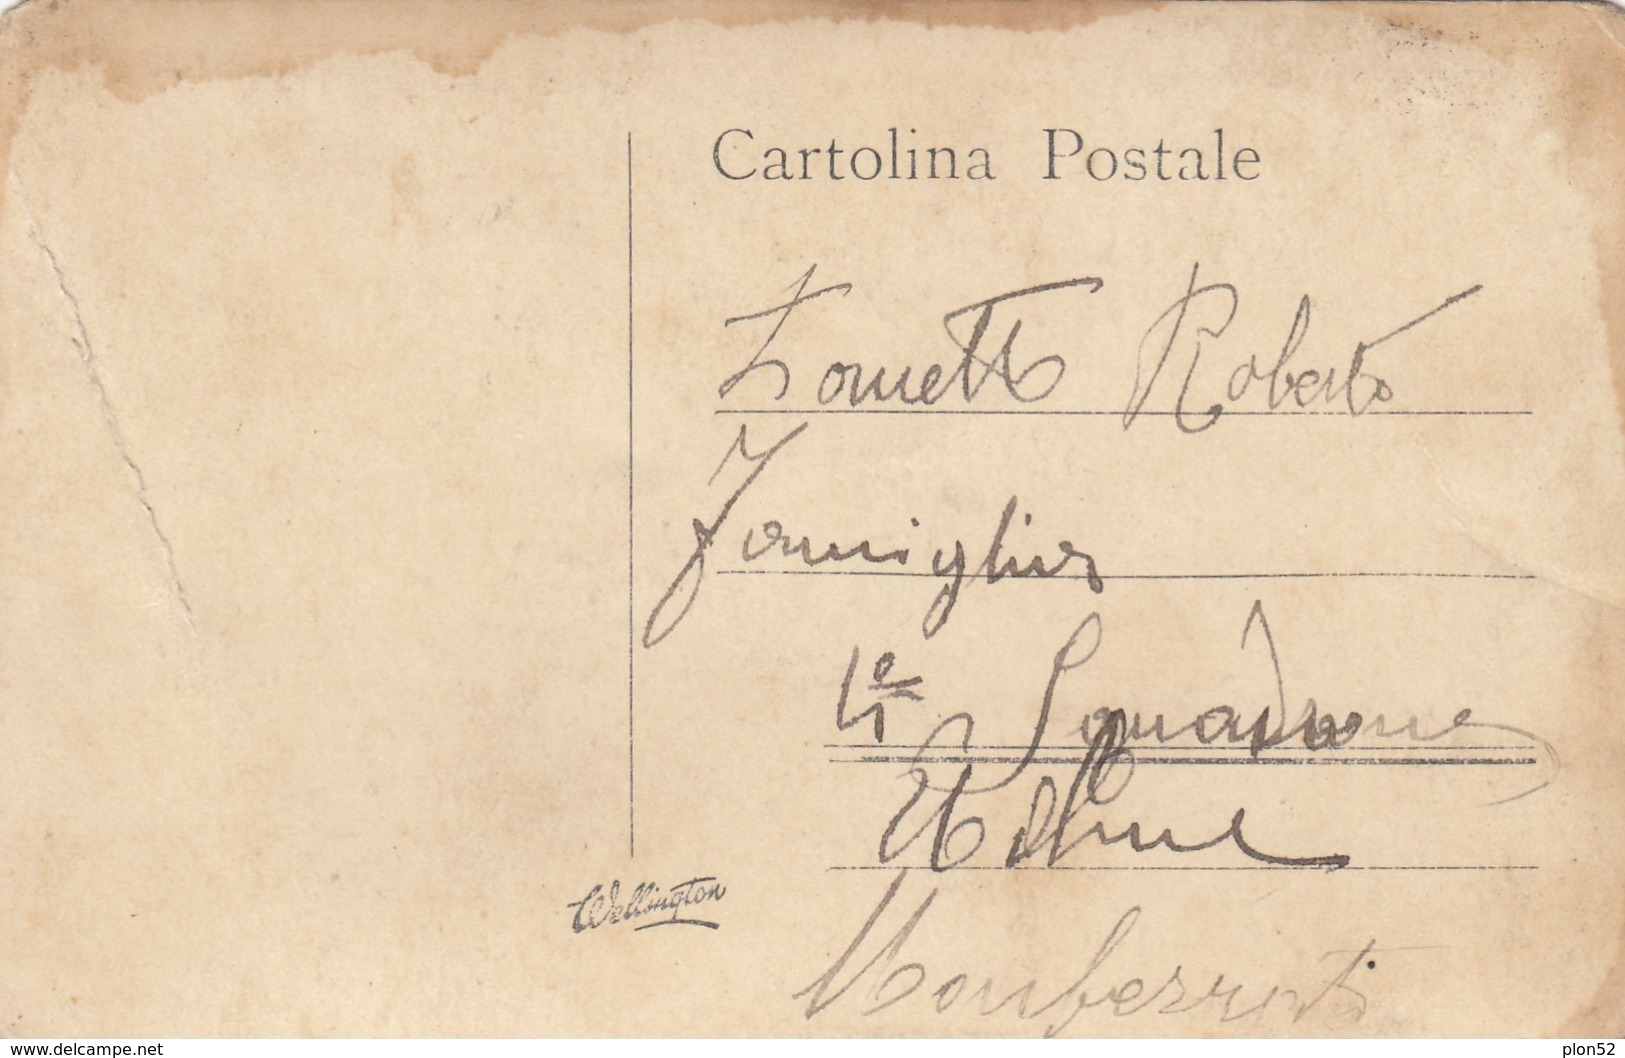 Cartolina Postale
Zometti Roberto
Famiglia
4º Squadrone
Monferrato
Wellington
www.delcampe.net
plon52